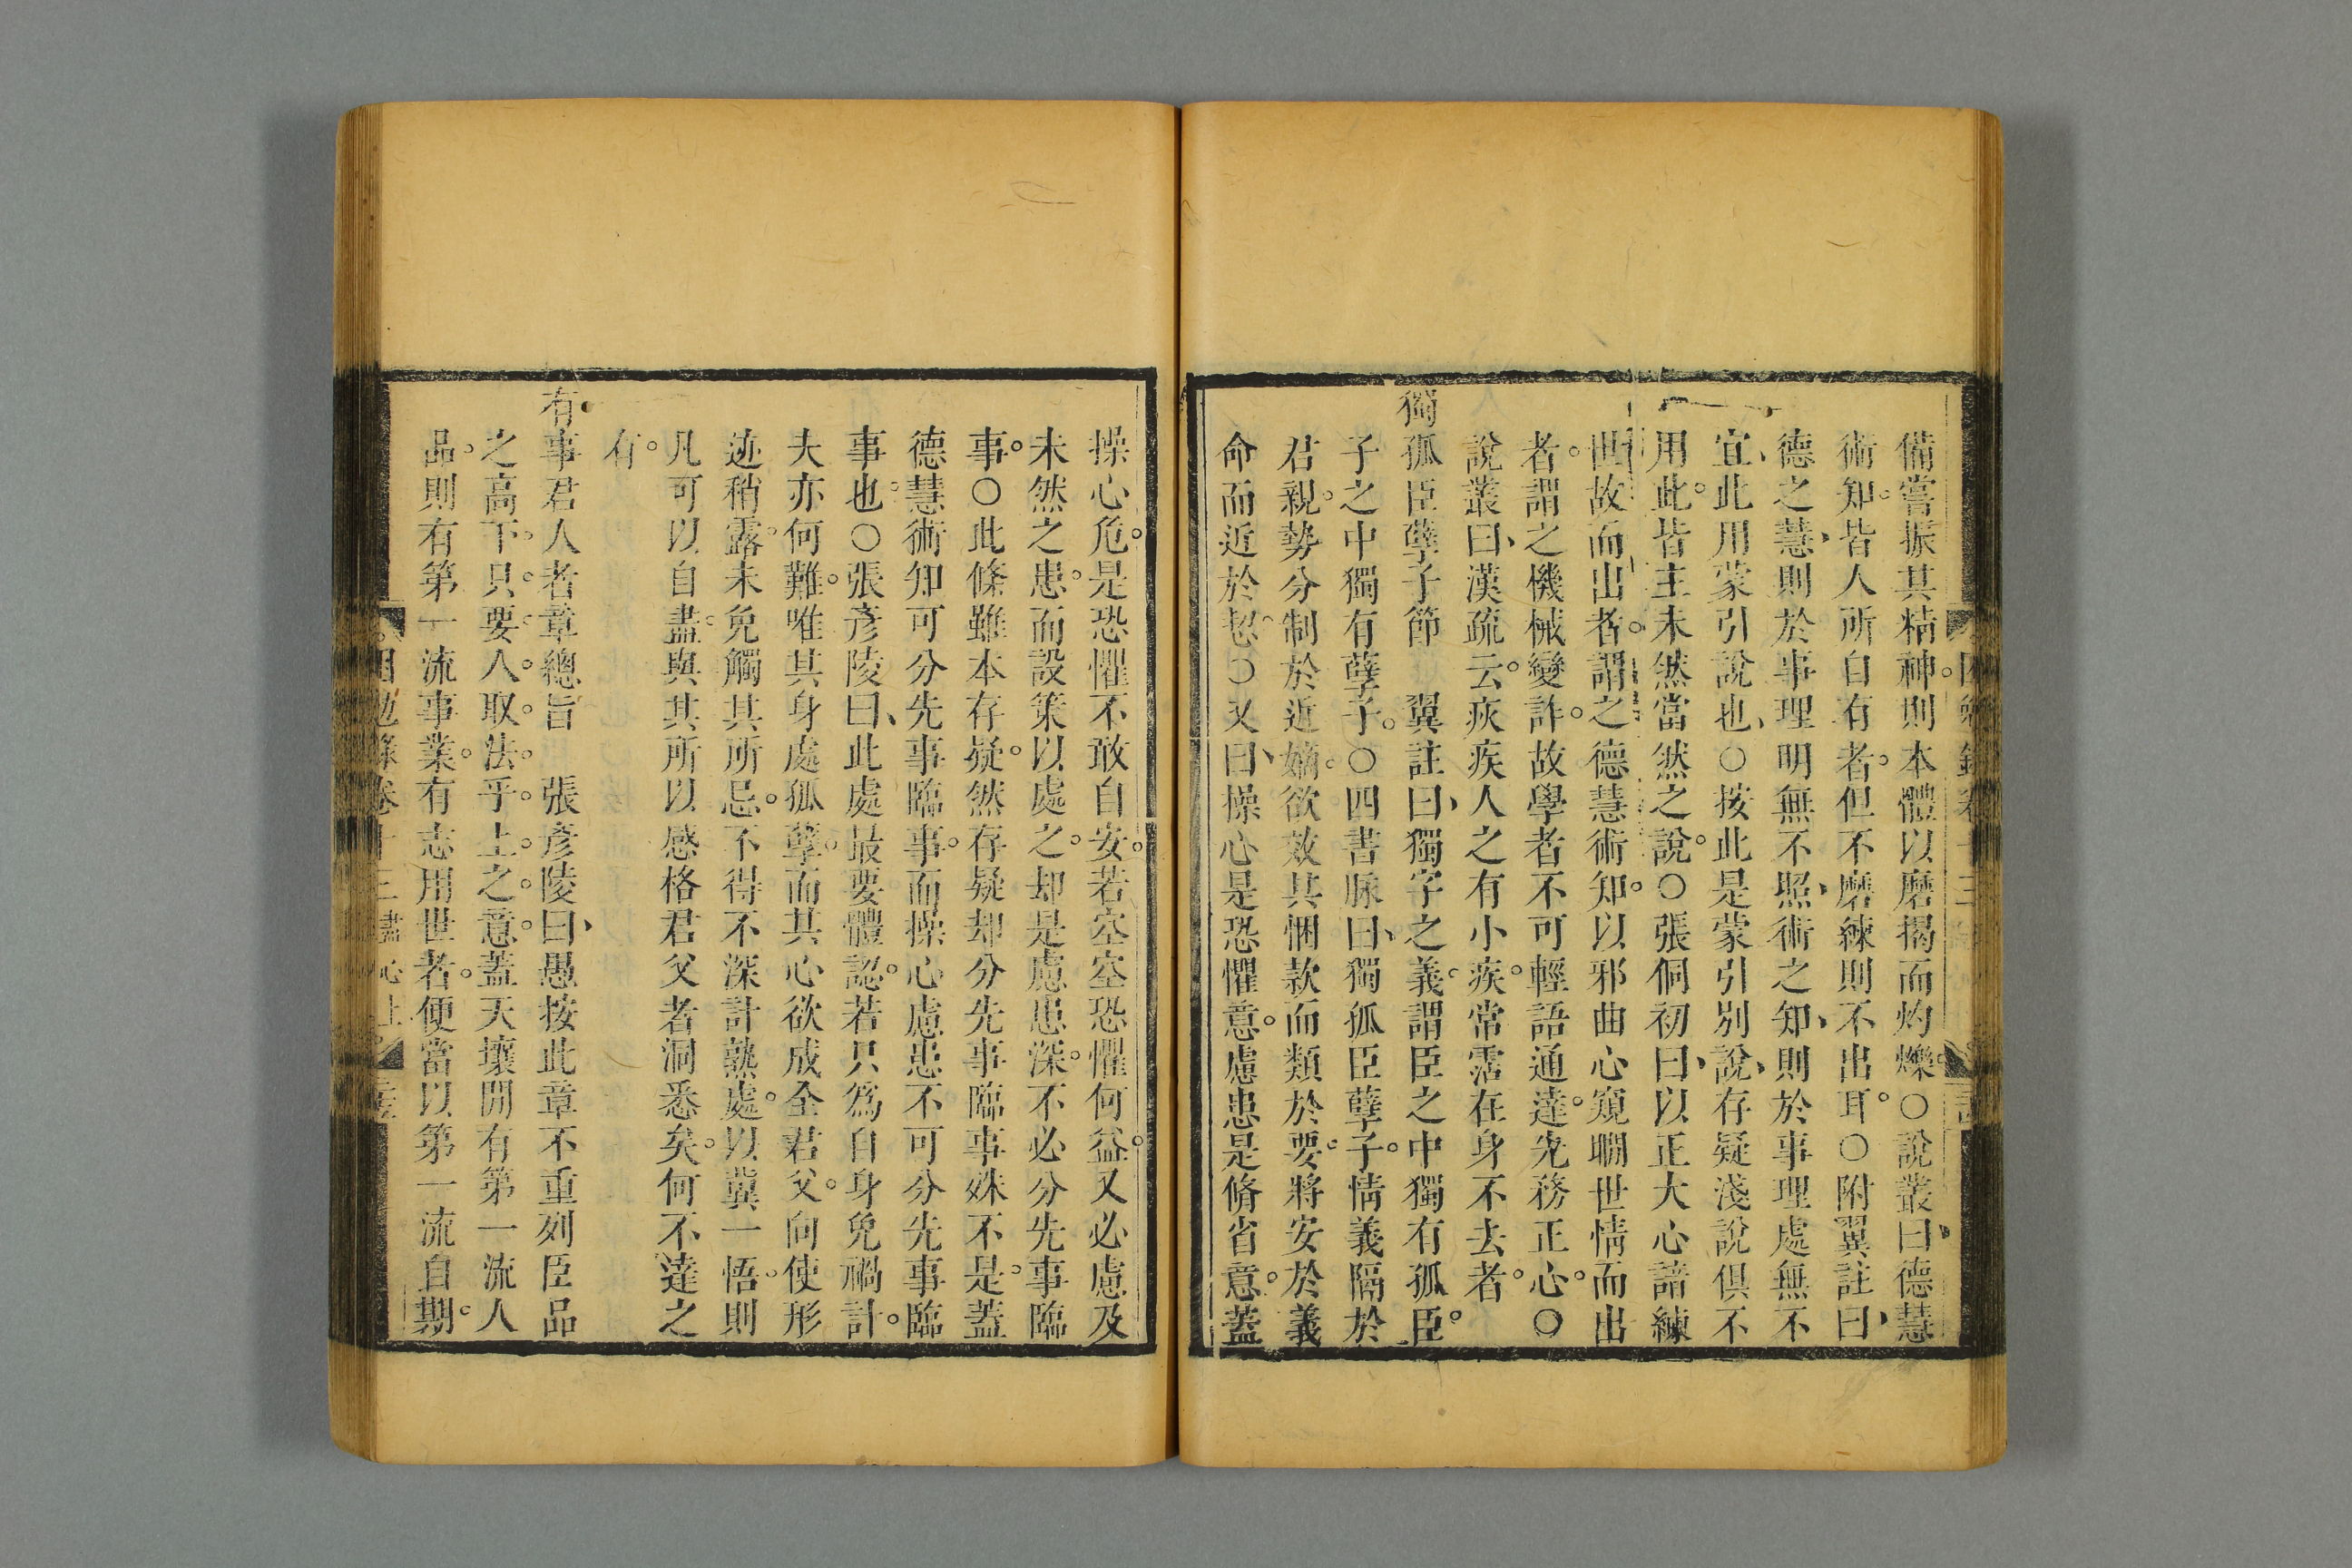 備嘗振其精神。則本體以磨揭而灼爍。○說叢曰、德慧
術知。皆人所自有者。但不磨練則不出耳。○附翼註曰、
德之慧、則於事理明無不照、術之知、則於事理處無不
宜、此用蒙引說也、○按此是蒙引別說、存疑淺說俱不
用此。皆主未然當然之說。○張侗初曰、以正大心諳練
世故而出者。謂之德慧術知。以邪曲心窺瞷世情而出
者。謂之機械變詐。故學者不可輕語通達。先務正心。○
說叢曰、漢疏云。疢疾人之有小疾。常霑在身不去者。
獨孤臣孽子節　翼註曰、獨字之義。謂臣之中獨有孤臣。
子之中獨有孽子。○四書脉曰、獨孤臣孽子。情義隔於
君親。勢分制於近嫡。欲效其悃款而類於要。將安於義
命而近於恝。○又曰、操心是恐懼意。慮患是脩省意。蓋
操心危。是恐懼不敢自安。若空空恐懼何益。又必慮及
未然之患。而設策以處之。却是慮患深。不必分先事臨
事。○此條雖本存疑。然存疑却分先事臨事殊不是。蓋
德慧術知可分先事臨事。而操心慮患不可分先事臨
事也。○張彥陵曰、此處最要體認。若只爲自身免禍計。
夫亦何難。唯其身處孤孽。而其心欲成全君父。向使形
迹稍露。未免觸其所忌。不得不深計熟處。以冀一悟。則
凡可以自盡。與其所以感格君父者洞悉矣。何不達之
有。
有事君人者章總旨　張彥陵曰、愚按此章不重列臣品
之高下。只要人取法乎上之意。蓋天壤間有第一流人
品。則有第一流事業。有志用世者。便當以第一流自期。
困勉錄卷十三 盡心上